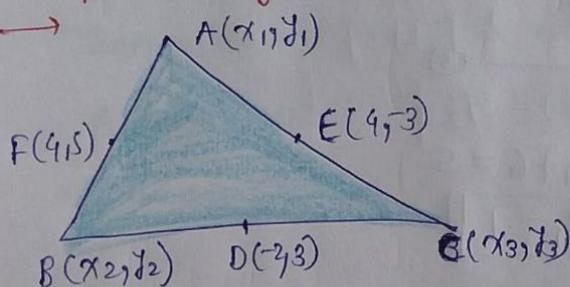 A(x1, y1)
F(4,5)
E(4,-3)
B(x2, y2)
D(-2,3)
C(x3, y3)